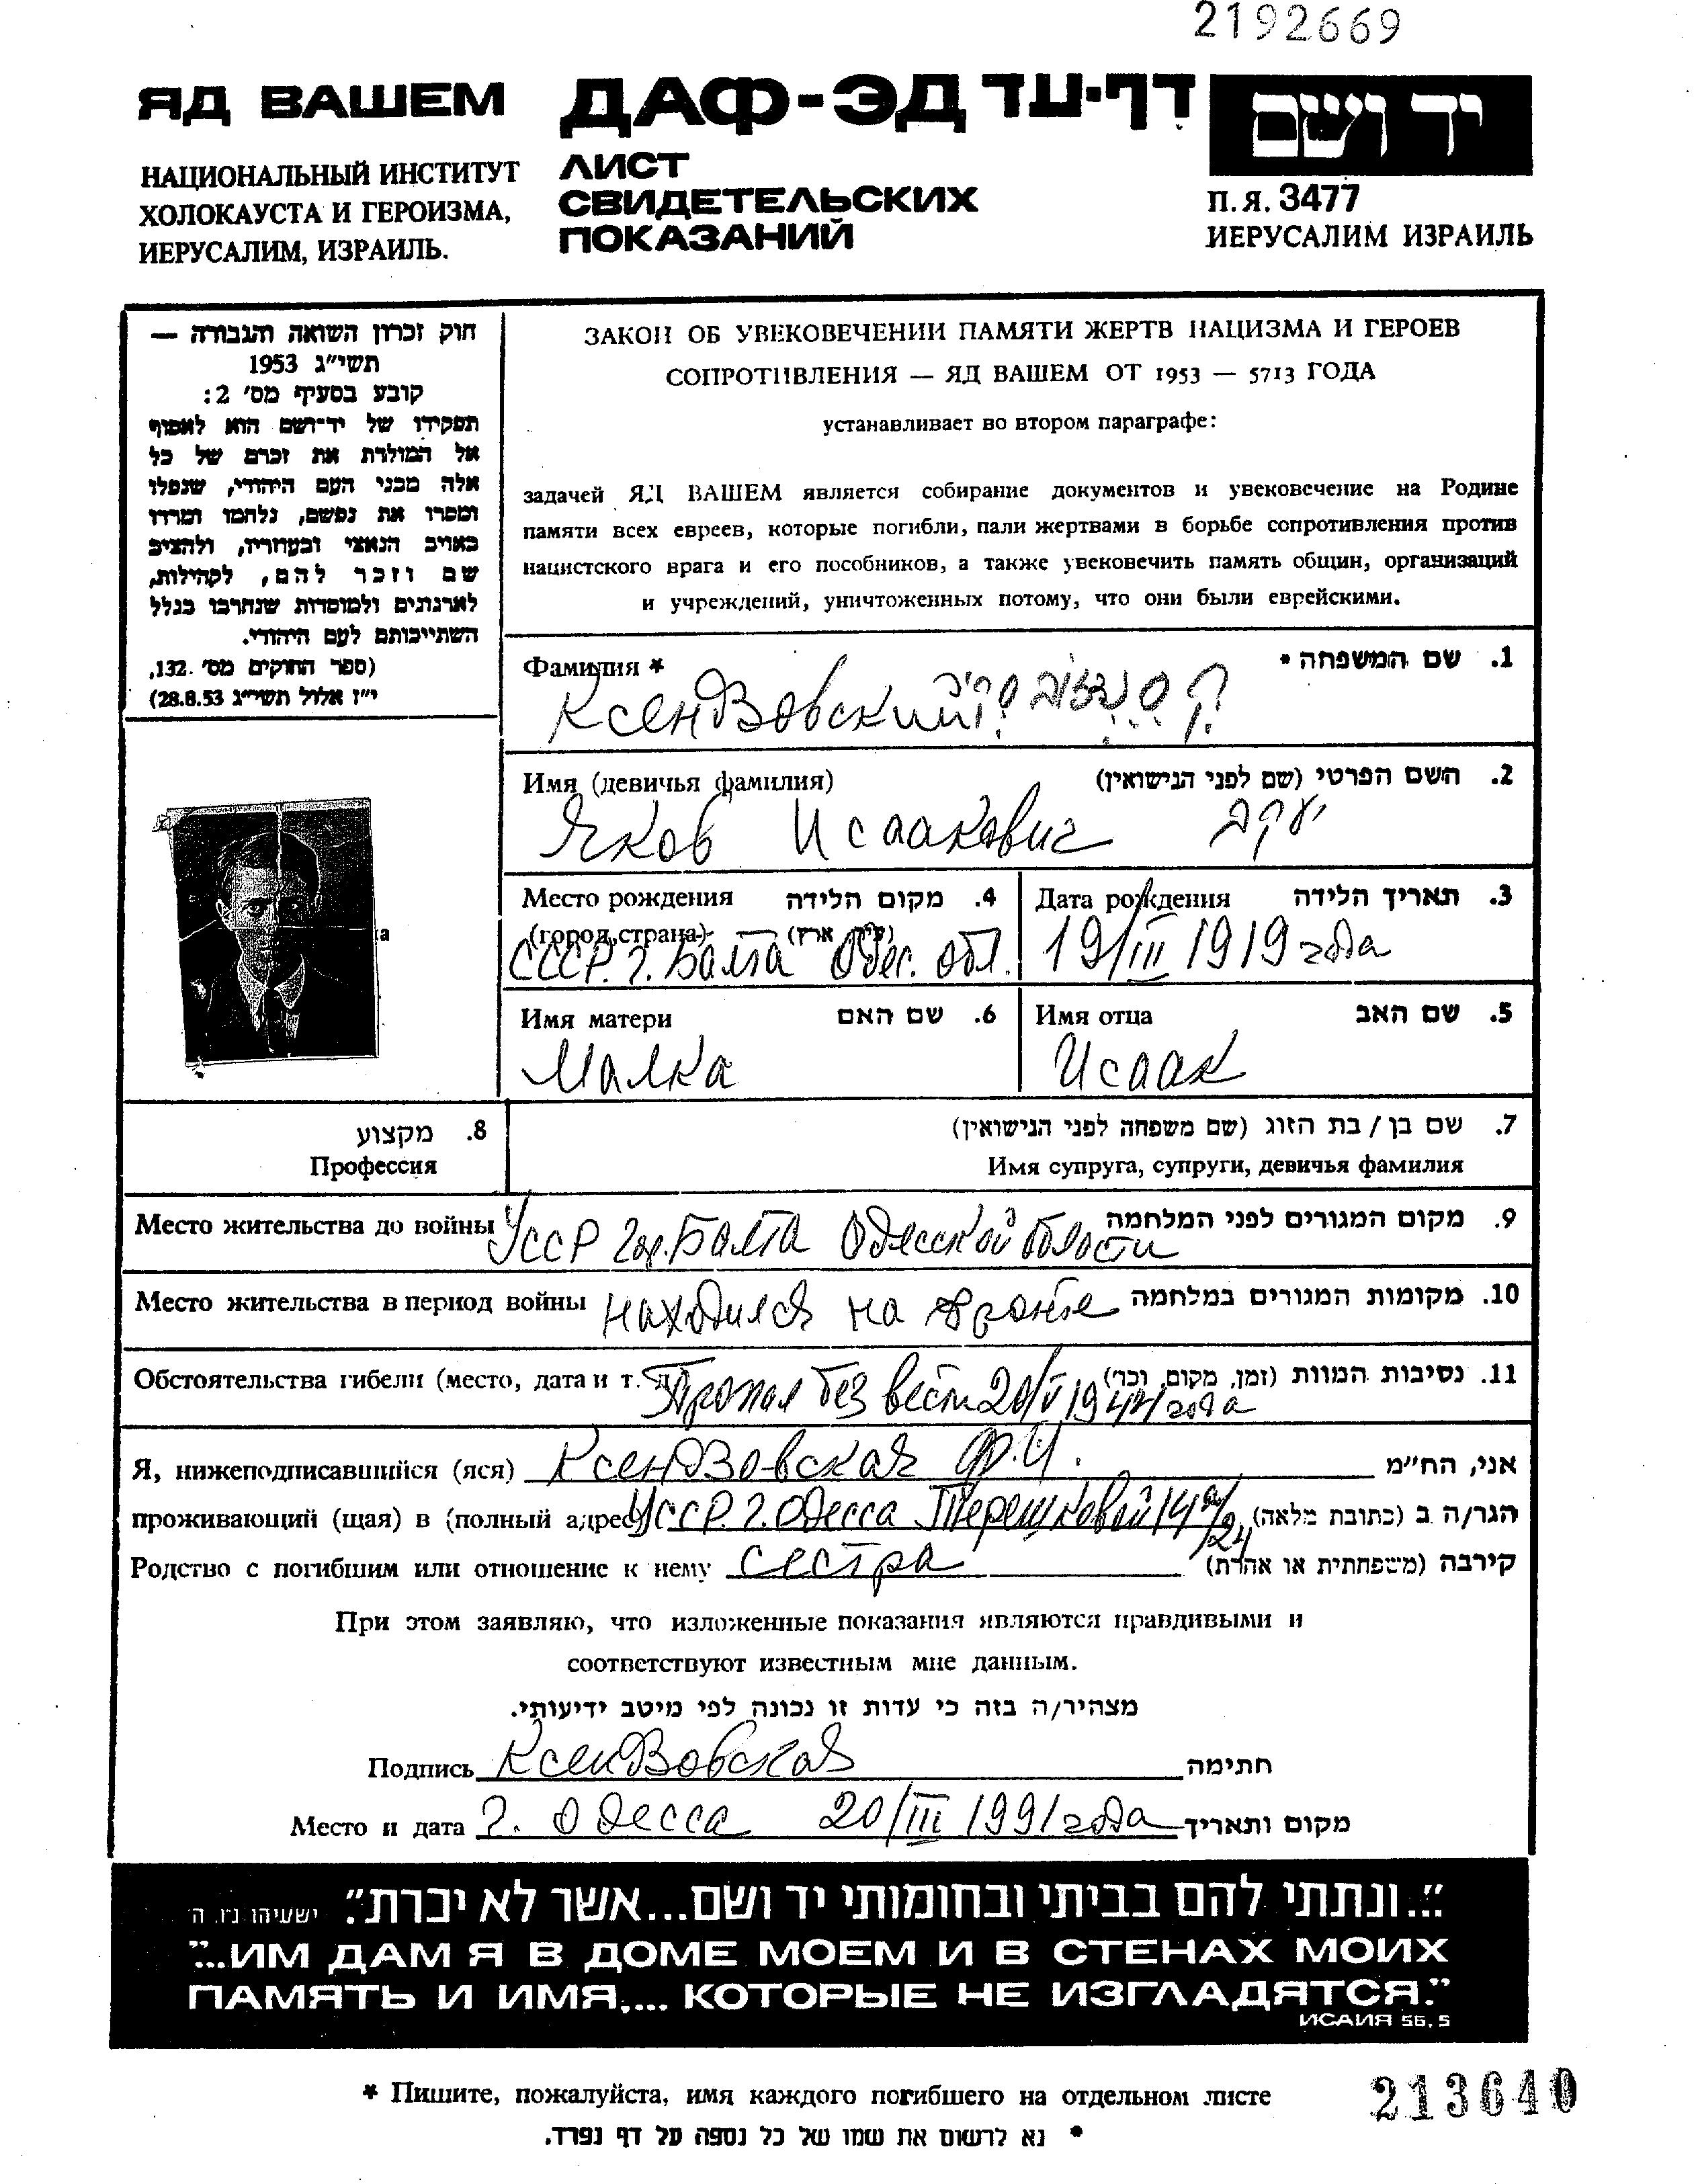 2192669
ЯД ВАШЕМ
НАЦИОНАЛЬНЫЙ ИНСТИТУТ
ХОЛОКАУСТА И ГЕРОИЗМА,
ИЕРУСАЛИМ, ИЗРАИЛЬ.
ДАФ-ЭД דף-עד
ЛИСТ
СВИДЕТЕЛЬСКИХ
ПОКАЗАНИЙ
יד ושם
П.Я. 3477
ИЕРУСАЛИМ ИЗРАИЛЬ
חוק זכרון השואה והגבורה —
תשי״ג 1953
קובע בסעיף מס׳ 2:
תפקידו של יד־ושם הוא לאסוף
אל המולדת את זכרם של כל
אלה מבני העם היהודי, שנפלו
ומסרו את נפשם, נלחמו ומרדו
באויב הנאצי ובעוזריו, ולהציב
שם וזכר להם, לקהילות,
לארגונים ולמוסדות שנחרבו בגלל
השתייכותם לעם היהודי.
(ספר החוקים מס׳ 132,
י״ז אלול תשי״ג 28.8.53)
ЗАКОН ОБ УВЕКОВЕЧЕНИИ ПАМЯТИ ЖЕРТВ НАЦИЗМА И ГЕРОЕВ
СОПРОТИВЛЕНИЯ — ЯД ВАШЕМ ОТ 1953 — 5713 ГОДА
устанавливает во втором параграфе:
задачей ЯД ВАШЕМ является собирание документов и увековечение на Родине
памяти всех евреев, которые погибли, пали жертвами в борьбе сопротивления против
нацистского врага и его пособников, а также увековечить память общин, организаций
и учреждений, уничтоженных потому, что они были еврейскими.
Фамилия * 1. שם המשפחה *
Ксендзовский קסנדזובסקי
Имя (девичья фамилия) 2. השם הפרטי (שם לפני הנישואין)
Яков Исаакович יעקב
Место рождения 4. מקום הלידה
(город, страна) (עיר, ארץ)
СССР. г. Балта Одес. обл.
Дата рождения 3. תאריך הלידה
19/III 1919 года
Имя матери 6. שם האם
Малка
Имя отца 5. שם האב
Исаак
8. מקצוע
Профессия
7. שם בן / בת הזוג (שם משפחה לפני הנישואין)
Имя супруга, супруги, девичья фамилия
Место жительства до войны УССР гор. Балта Одесской области 9. מקום המגורים לפני המלחמה
Место жительства в период войны находился на фронте 10. מקומות המגורים במלחמה
Обстоятельства гибели (место, дата и т. д.) Пропал без вести 20/V 1944 года 11. נסיבות המוות (זמן, מקום, וכו׳)
Я, нижеподписавшийся (яся) Ксендзовская Ф.И. אני, הח״מ
проживающий (щая) в (полный адрес) УССР. г. Одесса Терешковой 14 הגר/ה ב (כתובת מלאה)
Родство с погибшим или отношение к нему сестра קירבה (משפחתית או אחרת)
При этом заявляю, что изложенные показания являются правдивыми и
соответствуют известным мне данным.
מצהיר/ה בזה כי עדות זו נכונה לפי מיטב ידיעותי.
Подпись Ксендзовская חתימה
Место и дата г. Одесса 20/III 1991 года מקום ותאריך
״...ונתתי להם בביתי ובחומותי יד ושם...אשר לא יכרת.״ ישעיהו נ״ו, ה׳
"...ИМ ДАМ Я В ДОМЕ МОЕМ И В СТЕНАХ МОИХ
ПАМЯТЬ И ИМЯ,... КОТОРЫЕ НЕ ИЗГЛАДЯТСЯ."
ИСАИЯ 56, 5
* Пишите, пожалуйста, имя каждого погибшего на отдельном листе
* נא לרשום את שמו של כל נספה על דף נפרד.
213640